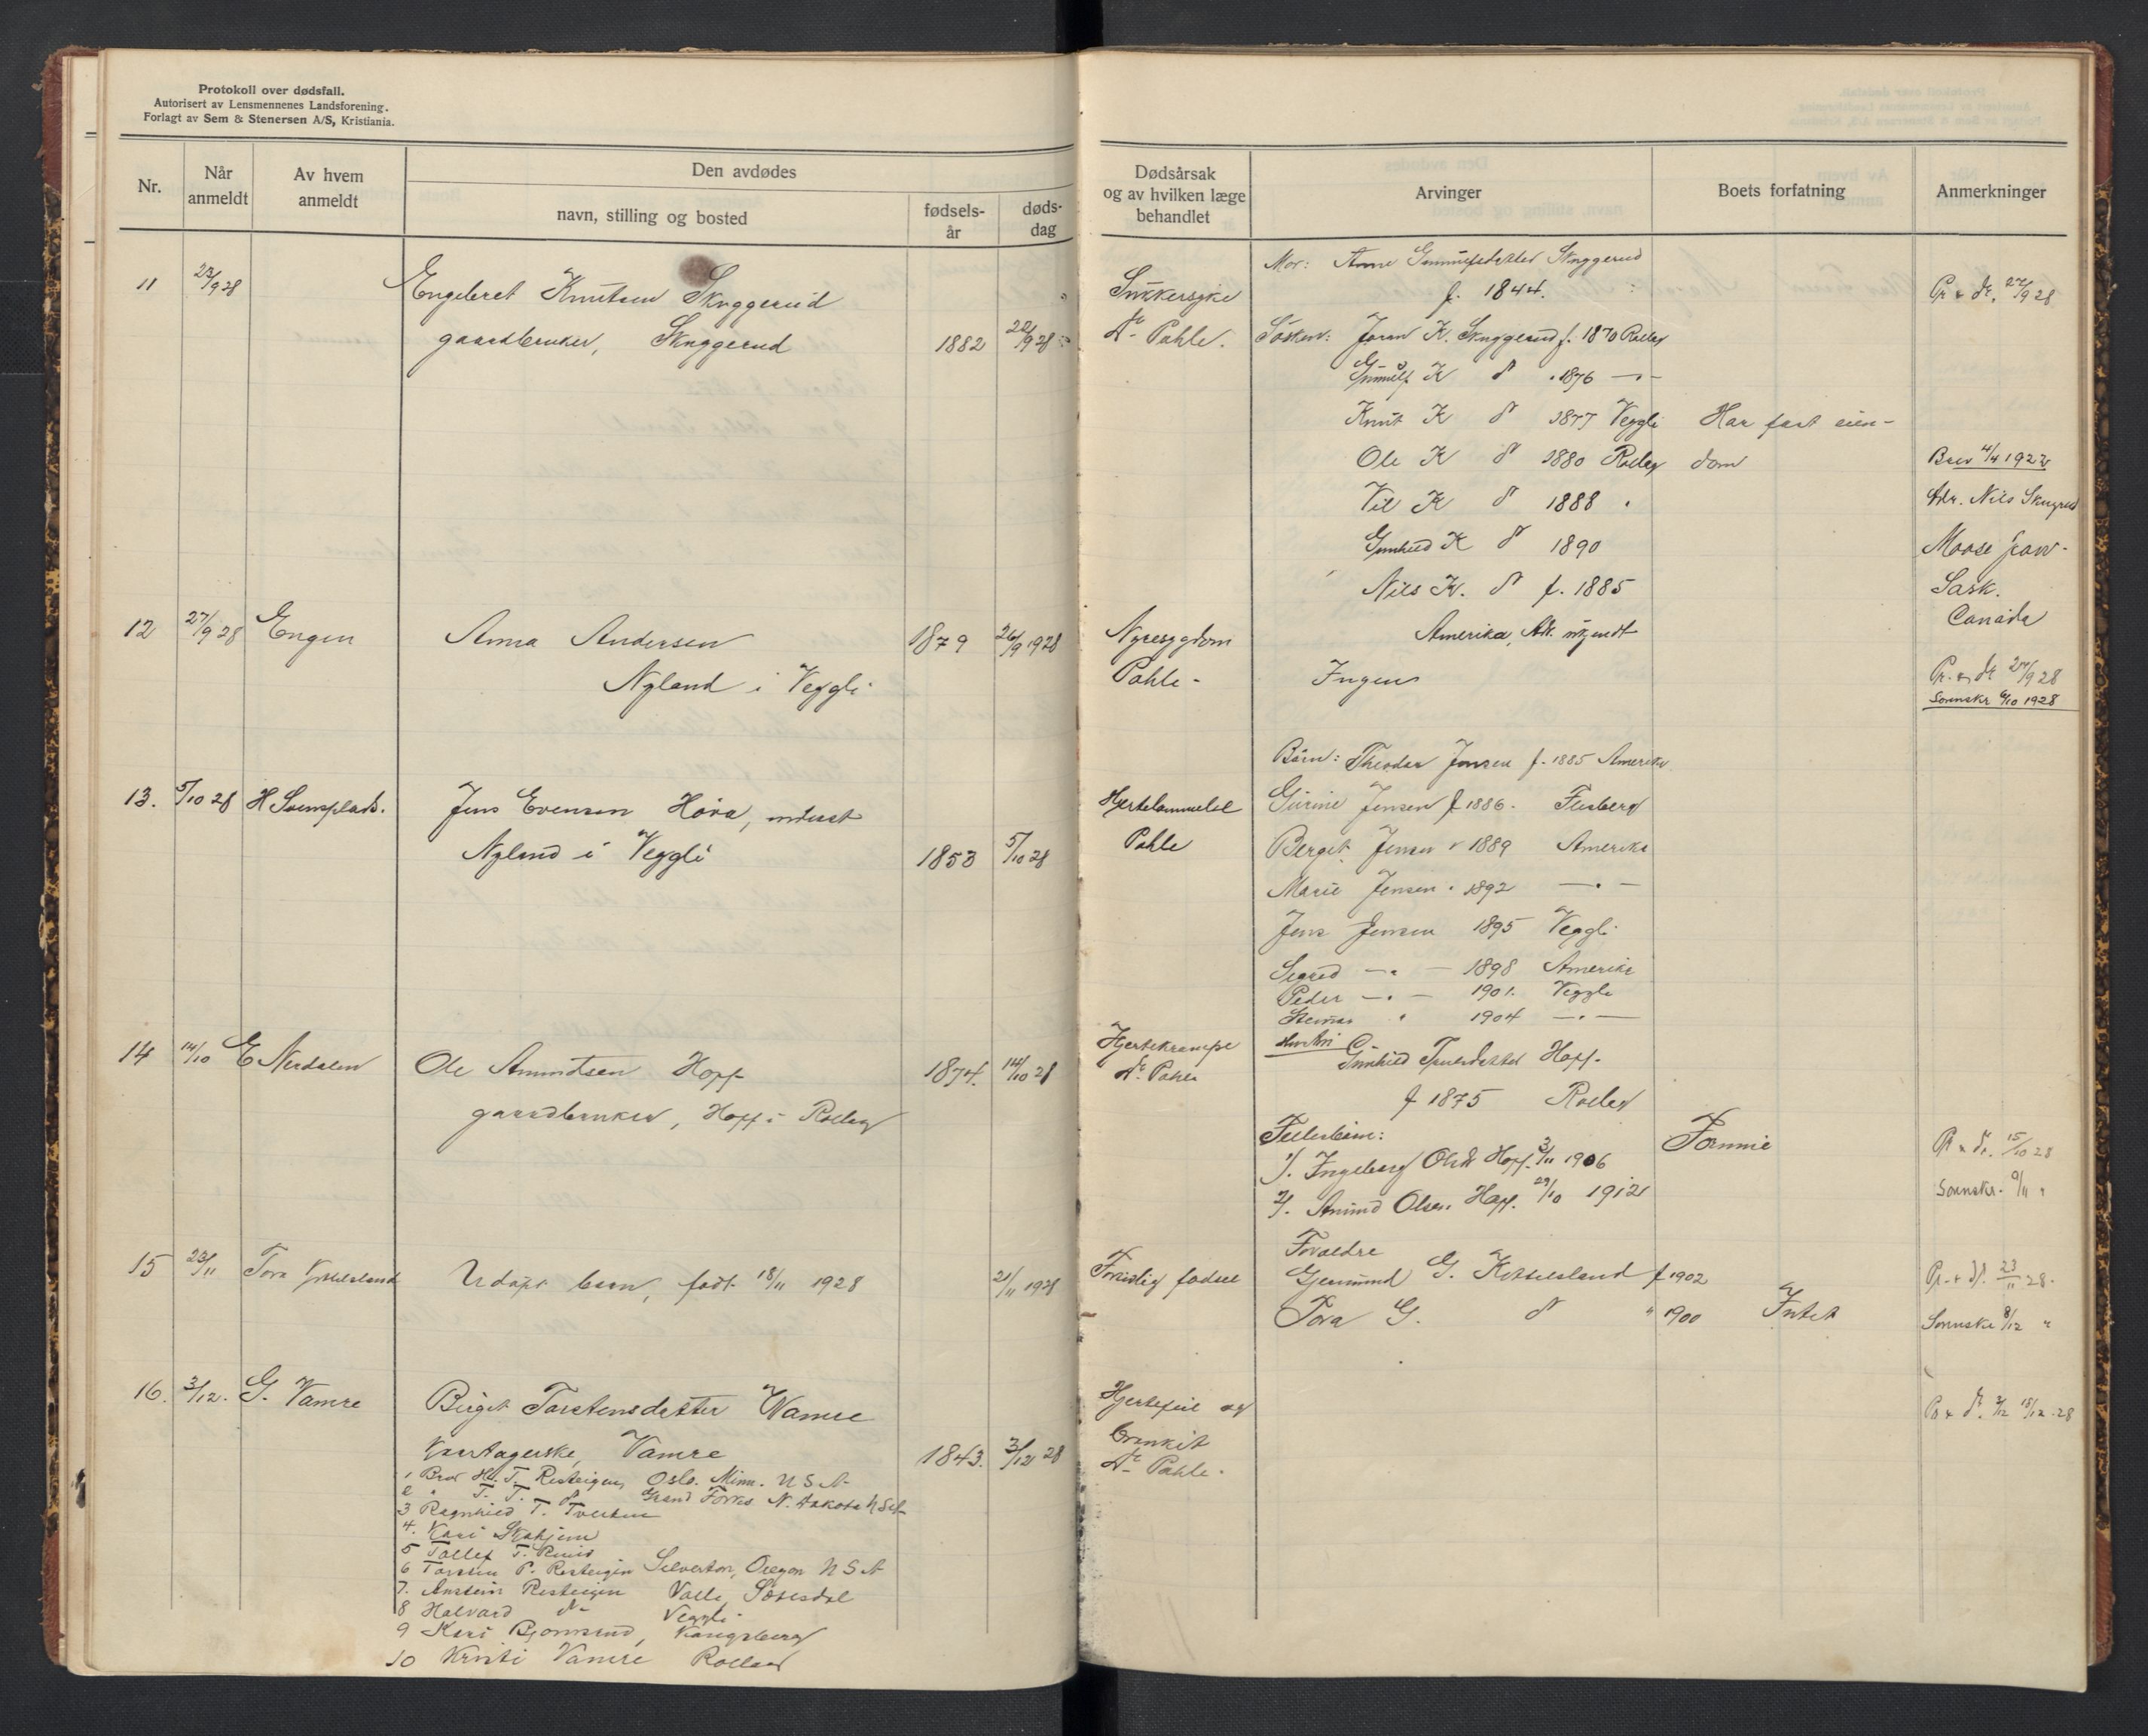 Protokoll over dødsfall.
Autorisert av Lensmennenes Landsforening.
Forlagt av Sem & Stenersen A/S, Kristiania.
Nr.
Når anmeldt
Av hvem anmeldt
Den avdødes
navn, stilling og bosted
fødselsår
dødsdag
Dødsårsak og av hvilken læge behandlet
Arvinger
Boets forfatning
Anmerkninger
11 22/9 28 Engebret Knutsen Skuggerud
gaardbruker, Skuggerud 1882 22/9 28
Sukkersyke
Dr. Pahle.
Mor: Anne Gunnulfsdatter Skuggerud
f. 1844.
Søsken: Joran K. Skuggerud f. 1870 Rollag
Gunnulf K do 1876 — " —
Knut K do 1877 Veggli
Ole K do 1880 Rollag
K do 1888 "
Gunhild K do 1890
Nils K. do f. 1885
Amerika, Adr. ukjendt
Har fast eien-
dom
Pr & dr. 22/9 28
Brev 4/4 1922
Adr. Nils Skugrud
Moose Jaw-
Sask.
Canada
12 27/9 28 Engen Anna Andersen
Nyland i Veggli 1879 26/9 1928
Nyresygdom
Pahle -
Ingen
Pr. & dr 27/9 28
Sorenskr 6/10 1928
13. 5/10 28 H Svensplads.
Jens Evensen Høva, inderst
Nyland i Veggli 1853 5/10 28
Hjertelammelse
Pahle
Børn: Theodor Jensen f. 1885 Amerika
Gurine Jensen f 1886. Flesberg
Berget Jensen " 1889 Amerika
Marie Jensen " 1892 — " —
Jens Jensen 1895 Veggli
Sigrid — " — 1898 Amerika
Peder — " — 1901. Veggli
" 1904 — " —
14 14/10 E Nerdalen
Ole Amundsen Hoff
gaardbruker, Hoff i Rollag 1874. 14/10 28
Hjertekrampe
Dr. Pahle
Hustru
Gunhild Hoff.
f 1875 Rollag
Fellesbarn:
1/. Ingeborg Olsdr Hoff. 3/11 1906
2/. Amund Olsen Hoff. 29/10 1912
Formue
Pr & dr. 15/10 28
Sorenskr. 9/11 "
15 23/11 Tora Kittelsland
Udøpt barn, født 18/11 1928 21/11 1928
Fortidlig fødsel
Foraldre
Gjermund G. Kittelsland f 1902
Tora G. do " 1900
Intet
Pr. & dr. 23/11 28.
Sorenskr 8/12 "
16. 3/12. G. Vamre
Birgit Torstensdatter Vamre
Kaartagerske, Vamre 1843. 3/12 28
Hjertefeil og
bronkit
Dr. Pahle.
Pr & dr. 3/12 18/12 28
1 Bror H. T. Resteigen, Oslo. Minn. U S A
2 " T. T. do Grand Forks N. Dakota U S A
3 Ragnhild T. Tveiten
4. Kari Skahjem
5 Tollef T. Ruud
6 Torstein P. Resteigen Silverton, Oregon U S A
7. Anstein Resteigen Valle, Setesdal
8 Halvard do Veggli
9 Kari Bjørnerud, Kongsberg
10 Kristi Vamre Rollag